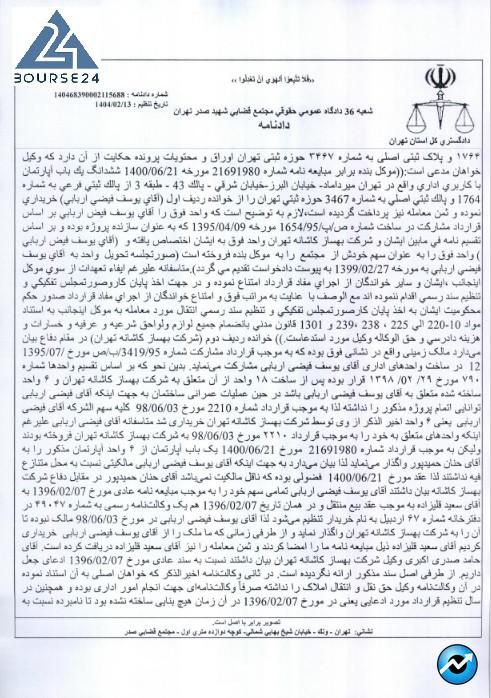 BOURSE24
((فَلا تتَّبِعُوا الهَوىٰ اَنْ تَعدِلُوا))
شماره دادنامه : 140468390002115688
تاریخ تنظیم : 1404/02/13
شعبه 36 دادگاه عمومی حقوقی مجتمع قضایی شهید صدر تهران
دادنامه
دادگستری کل استان تهران
۱۷۶۴ و پلاک ثبتی اصلی به شماره ۳۴۶۷ حوزه ثبتی تهران اوراق و محتویات پرونده حکایت از آن دارد که وکیل
خواهان مدعی است:((موکل بنده برابر مبایعه نامه شماره 21691980 مورخه 1400/06/21 ششدانگ یک باب آپارتمان
با کاربری اداری واقع در تهران میرداماد- خیابان البرز-خیابان شرقی - پالك 43 - طبقه 3 از پالك ثبتی فرعی به شماره
1764 و پالك ثبتی اصلی به شماره 3467 حوزه ثبتی تهران را از خوانده ردیف اول (آقای یوسف فیضی اربابی) خریداری
نموده و ثمن معامله نیز پرداخت گردیده است،لازم به توضیح است که واحد فوق را آقای یوسف فیض اربابی بر اساس
قرارداد مشارکت در ساخت شماره ص/پ/1654/95 مورخ 1395/04/09 که به عنوان سازنده پروژه بوده و بر اساس
تقسیم نامه فی مابین ایشان و شرکت بهساز کاشانه تهران واحد فوق به ایشان اختصاص یافته و (آقای یوسف فیض اربابی
) واحد فوق را به عنوان سهم خودش از مجتمع را به موکل بنده فروخته است (صورتجلسه تحویل واحد به آقای یوسف
فیضی اربابی به مورخه 1399/02/27 به پیوست دادخواست تقدیم می گردد).متاسفانه علیرغم ایفاء تعهدات از سوی موکل
اینجانب،ایشان و سایر خواندگان از اجرای مفاد قرارداد امتناع نموده و در جهت اخذ پایان کاروصورتمجلس تفکیکی و
تنظیم سند رسمی اقدام ننموده اند مع الوصف با عنایت به مراتب فوق و امتناع خواندگان از اجرای مفاد قرارداد صدور حکم
محکومیت ایشان به اخذ پایان کاروصورتمجلس تفکیکی و تنظیم سند رسمی انتقال مورد معامله به موکل اینجانب به استناد
مواد 10-220 الی 225 ، 238 ،239 و 1301 قانون مدنی بانضمام جمیع لوازم ولواحق شرعیه و عرفیه و خسارات و
هزینه دادرسی و حق الوکاله وکیل مورد استدعاست.)) خوانده ردیف دوم (شرکت بهساز کاشانه تهران) در مقام دفاع بیان
میدارد مالک زمینی واقع در نشانی فوق بوده که به موجب قرارداد مشارکت شماره 3419/95/ب/ص مورخ 1395/07/
12 در ساخت واحدهای اداری آقای یوسف فیضی اربابی مشارکت می‌نماید. بدین نحو که بر اساس تقسیم واحدها شماره
۷۹۰ مورخ ۲۹/ ۰۲/ ۱۳۹۸ قرار بوده پس از ساخت ۱۸ واحد از آن متعلق به شرکت بهساز کاشانه تهران و ۶ واحد
ساخته شده متعلق به آقای یوسف فیضی اربابی باشد در حین عملیات عمرانی ساختمان به جهت اینکه آقای فیضی اربابی
توانایی اتمام پروژه مذکور را نداشته لذا به موجب قرارداد شماره 2210 مورخ 98/06/03 کلیه سهم الشرکه آقای فیضی
اربابی یعنی ۶ واحد اخیر الذکر از وی توسط شرکت بهساز کاشانه تهران خریداری شد متاسفانه آقای فیضی اربابی علیرغم
اینکه واحدهای متعلق به خود را به موجب قرارداد ۲۲۱۰ مورخ 98/06/03 به شرکت بهساز کاشانه تهران فروخته بودند
ولیکن به موجب قرارداد شماره 21691980 مورخ 1400/06/21 یک باب آپارتمان از ۶ واحد آپارتمان مذکور را به
آقای حنان حمیدپور واگذار می‌نماید لذا بیان می‌دارد به جهت اینکه آقای یوسف فیضی اربابی مالکیتی نسبت به محل متنازع
فیه نداشتند لذا عقد مورخ 1400/06/21 فضولی بوده که ناقل مالکیت نمی‌باشد آقای حنان حمیدپور در مقابل دفاع شرکت
بهساز کاشانه بیان داشتند آقای یوسف فیضی اربابی تمامی سهم خود را به موجب مبایعه نامه عادی مورخ 1396/02/07 به
آقای سعید قلیزاده به موجب عقد بیع منتقل و در همان تاریخ 1396/02/07 هم یک وکالت‌نامه رسمی به شماره ۴۹۰۴۷ در
دفترخانه شماره ۶۷ اردبیل به نام خریدار تنظیم می‌شود لذا آقای یوسف فیضی اربابی در مورخ 98/06/03 مالک نبوده تا
آن را به شرکت بهساز کاشانه تهران واگذار نماید و از طرفی زمانی که ما ملک را از آقای یوسف فیضی اربابی خریداری
کردیم آقای سعید قلیزاده ذیل مبایعه نامه ما را امضا کردند و ثمن معامله را نیز آقای سعید قلیزاده دریافت کرده است. آقای
حامد صدری اکبری وکیل شرکت بهساز کاشانه تهران بیان داشتند نسبت به سند عادی مورخ 1396/02/07 ادعای جعل
داریم. از طرفی اصل سند مذکور ارائه نگردیده است. در ثانی وکالت‌نامه اخیر‌الذکر که خواهان اصلی به آن استناد نموده
در آن وکالت‌نامه وکیل حق نقل و انتقال املاک را نداشته صرفاً وکالت‌نامه‌ای جهت انجام امور اداری بوده و همچنین در
سال تنظیم قرارداد مورد ادعایی یعنی در مورخ 1396/02/07 در آن زمان هیچ بنایی ساخته نشده بود تا نامبرده نسبت به
تصویر برابر با اصل است.
نشانی: تهران - ونك - خیابان شیخ بهایی شمالی- کوچه دوازده متری اول - مجتمع قضایی صدر